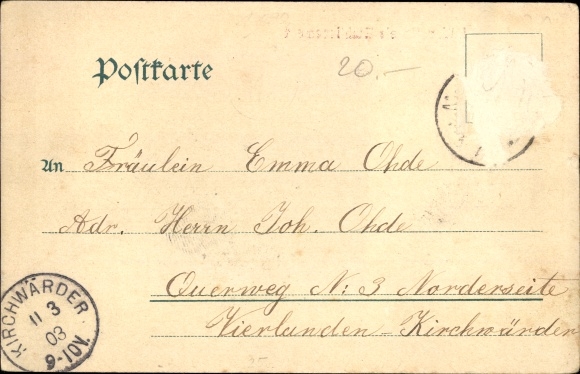 Postkarte
20.-
An Fräulein Emma Ohde
Adr. Herrn Joh. Ohde
Querweg N: 3 Norderseite
Vierlanden Kirchwärder
KIRCHWÄRDER
11 3
03
9-10V.